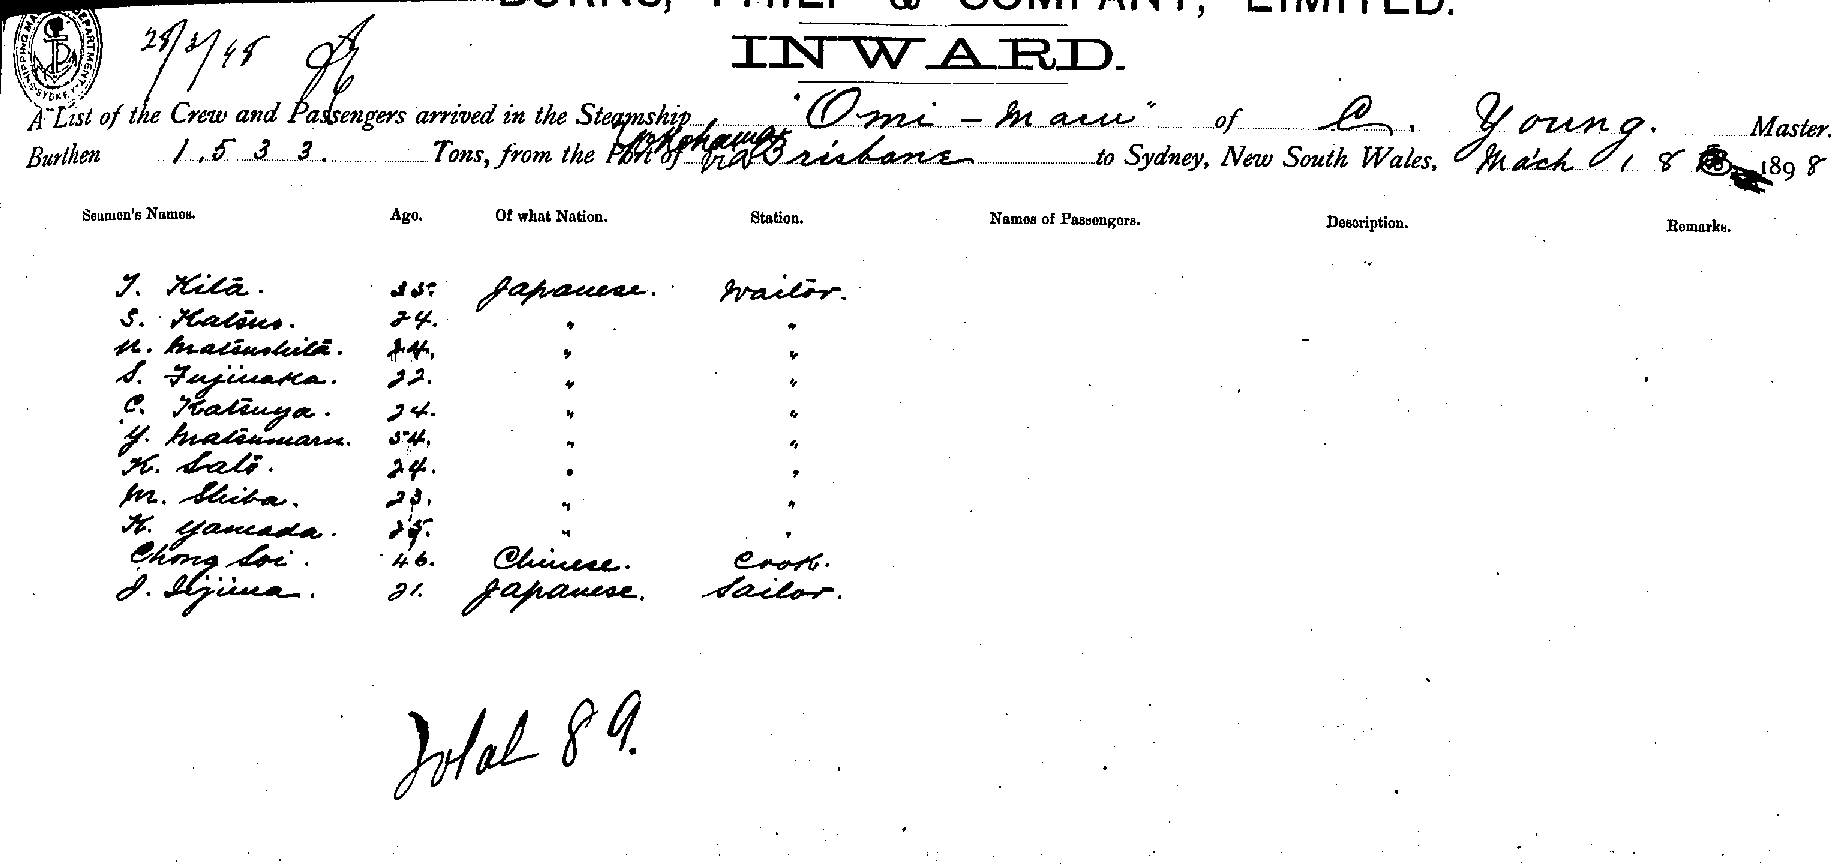 BURNS, PHILP & COMPANY, LIMITED.
INWARD.
SHIPPING MA DEPARTMENT SYDNEY
28/3/98
A List of the Crew and Passengers arrived in the Steamship "Omi-Maru" of C. Young. Master.
Burthen 1,533. Tons, from the Port of Yokohama via Brisbane to Sydney, New South Wales, March 18 1898
Seamen's Names. Age. Of what Nation. Station. Names of Passengers. Description. Remarks.
T. Kita. Japanese. Waitor.
S. Katsuo. 24. " "
N. Matsushita. 24. " "
S. Fujinaka. 22. " "
C. Katsuya. 24. " "
Y. Matsumaru. 54. " "
K. Sato. 24. " "
M. Shiba. 23. " "
K. Yamada. 25. " "
Chong Soi. 46. Chinese. Cook.
J. Iijima. 21. Japanese. Sailor.
Total 89.